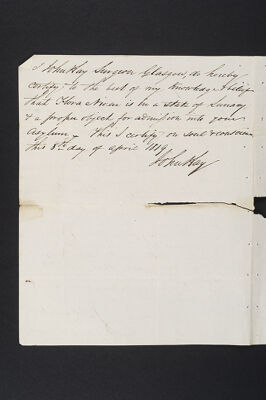 I John Kay Surgeon Glasgow, do hereby
certify, to the best of my knowledge & belief
that Flora is in a state of Lunacy
& a proper object for admission into your
Asylum, This I certify on soul & conscience
this 8th day of April
John Kay